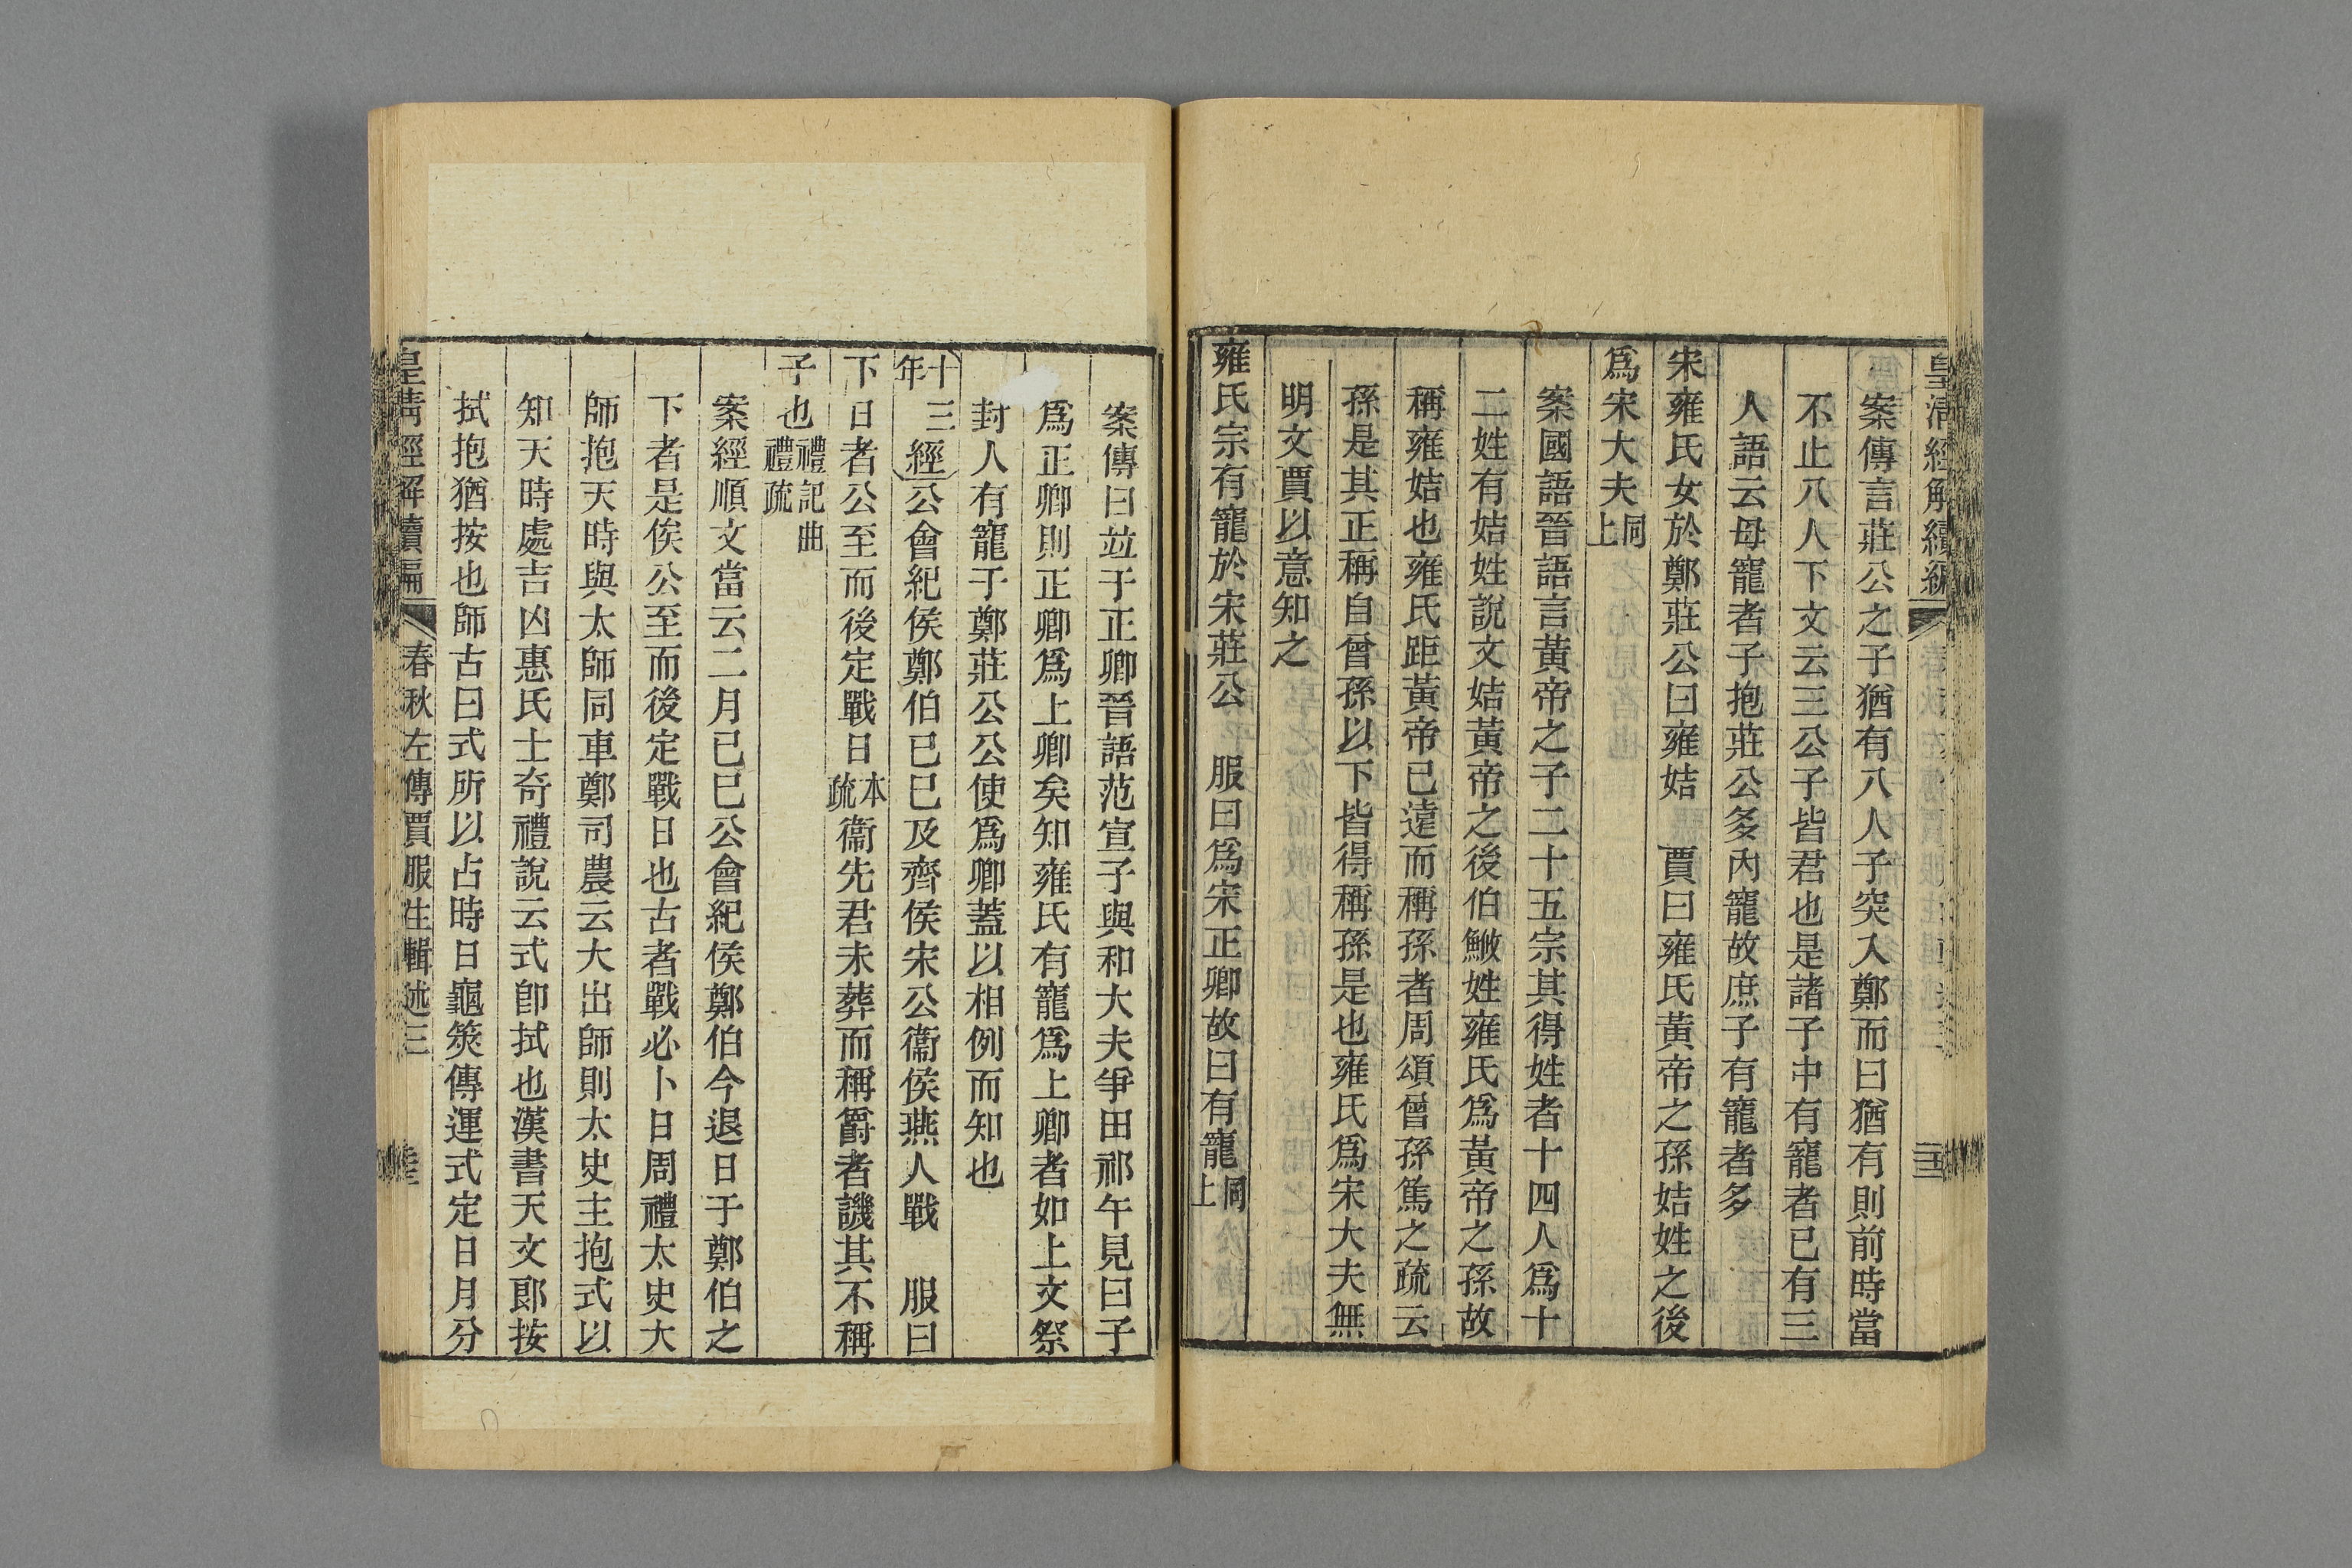 皇清經解續編
案傳言莊公之子猶有八人子突入鄭而曰猶有則前時當
不止八人下文云三公子皆君也是諸子中有寵者已有三
人語云母寵者子抱莊公多內寵故庶子有寵者多
宋雍氏女於鄭莊公曰雍姞　賈曰雍氏黃帝之孫姞姓之後
爲宋大夫同上
案國語晉語言黃帝之子二十五宗其得姓者十四人爲十
二姓有姞姓說文姞黃帝之後伯鯈姓雍氏爲黃帝之孫故
稱雍姞也雍氏距黃帝已遠而稱孫者周頌曾孫篤之疏云
孫是其正稱自曾孫以下皆得稱孫是也雍氏爲宋大夫無
明文賈以意知之
雍氏宗有寵於宋莊公　服曰爲宋正卿故曰有寵同上
案傳曰竝于正卿晉語范宣子與和大夫爭田祁午見曰子
爲正卿則正卿爲上卿矣知雍氏有寵爲上卿者如上文祭
封人有寵于鄭莊公公使爲卿蓋以相例而知也
十三年經公會紀侯鄭伯已巳及齊侯宋公衞侯燕人戰　服曰
下日者公至而後定戰日本疏衞先君未葬而稱爵者譏其不稱
子也禮記曲禮疏
案經順文當云二月已巳公會紀侯鄭伯今退日于鄭伯之
下者是俟公至而後定戰日也古者戰必卜日周禮太史大
師抱天時與太師同車鄭司農云大出師則太史主抱式以
知天時處吉凶惠氏士奇禮說云式卽拭也漢書天文郎按
拭抱猶按也師古曰式所以占時日龜筴傳運式定日月分
皇清經解續編　春秋左傳賈服注輯述三